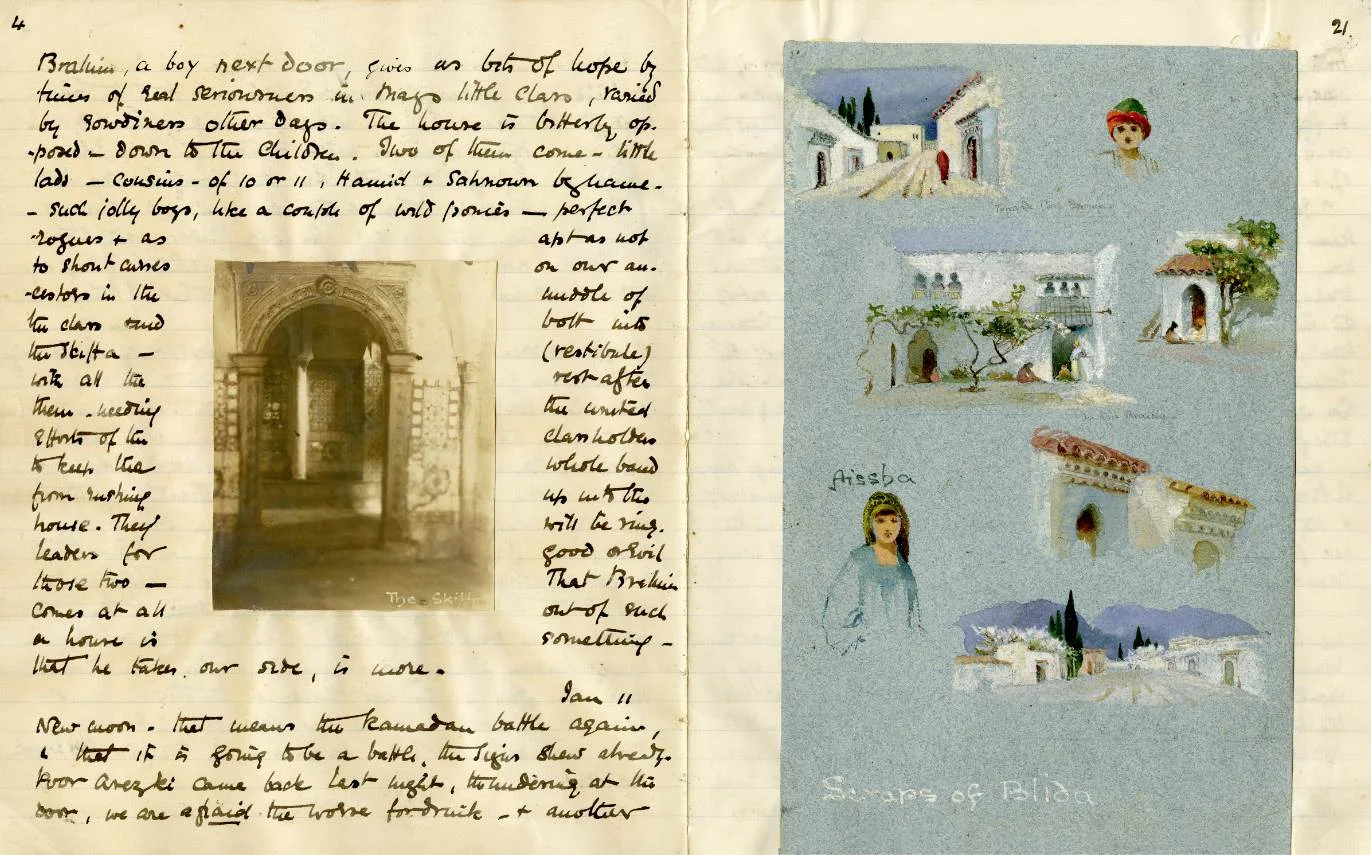 4
Brahim, a boy next door, gives us bits of hope by
times of real seriousness in Mays little class, varied
by rowdiness other days. The house is bitterly op-
-posed - down to the children. Two of them come - little
lads - cousins - of 10 or 11, Hamid + Sahnown by name -
- such jolly boys, like a couple of wild ponies - perfect
rogues + as apt as not
to shout curses on our an-
-cestors in the middle of
the class and bolt into
the skiffa - (vestibule)
with all the rest after
them - needing the united
efforts of the classholders
to keep the whole band
from rushing up into the
house. They will be ring-
leaders for good or evil
those two - That Brahim
comes at all out of such
a house is something -
that he takes our side, is more.
The Skiffa
Jan 11
New moon - that means the Ramadan battle again,
& that it is going to be a battle, the signs shew already.
Poor Arezki came back last night, thundering at the
door, we are afraid the worse for drink - + another
21.
Aissha
Scraps of Blida